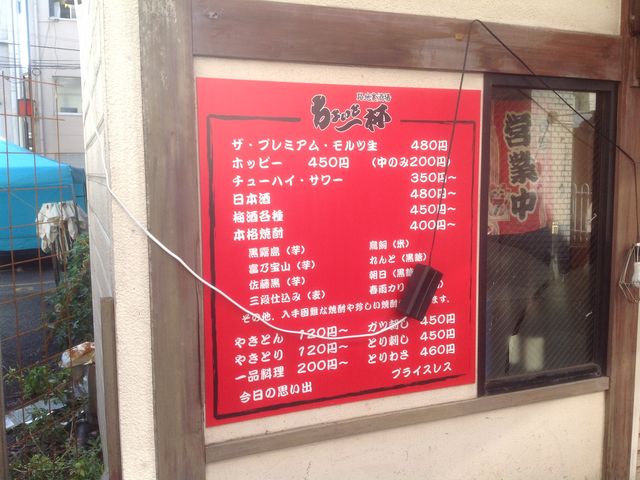 民衆酒場
ちょいと一杯
ザ・プレミアム・モルツ生 480円
ホッピー 450円 (中のみ200円)
チューハイ・サワー 350円～
日本酒 480円～
梅酒各種 450円～
本格焼酎 400円～
黒霧島（芋） 鳥飼（米）
富乃宝山（芋） れんと（黒糖）
佐藤黒（芋） 朝日（黒糖
三段仕込み（麦） 春雨カリ
その他、入手困難な焼酎や珍しい焼酎 ます。
やきとん 120円～ ガツ刺し 450円
やきとり 120円～ とり刺し 450円
一品料理 200円～ とりわさ 460円
今日の思い出 プライスレス
営業中